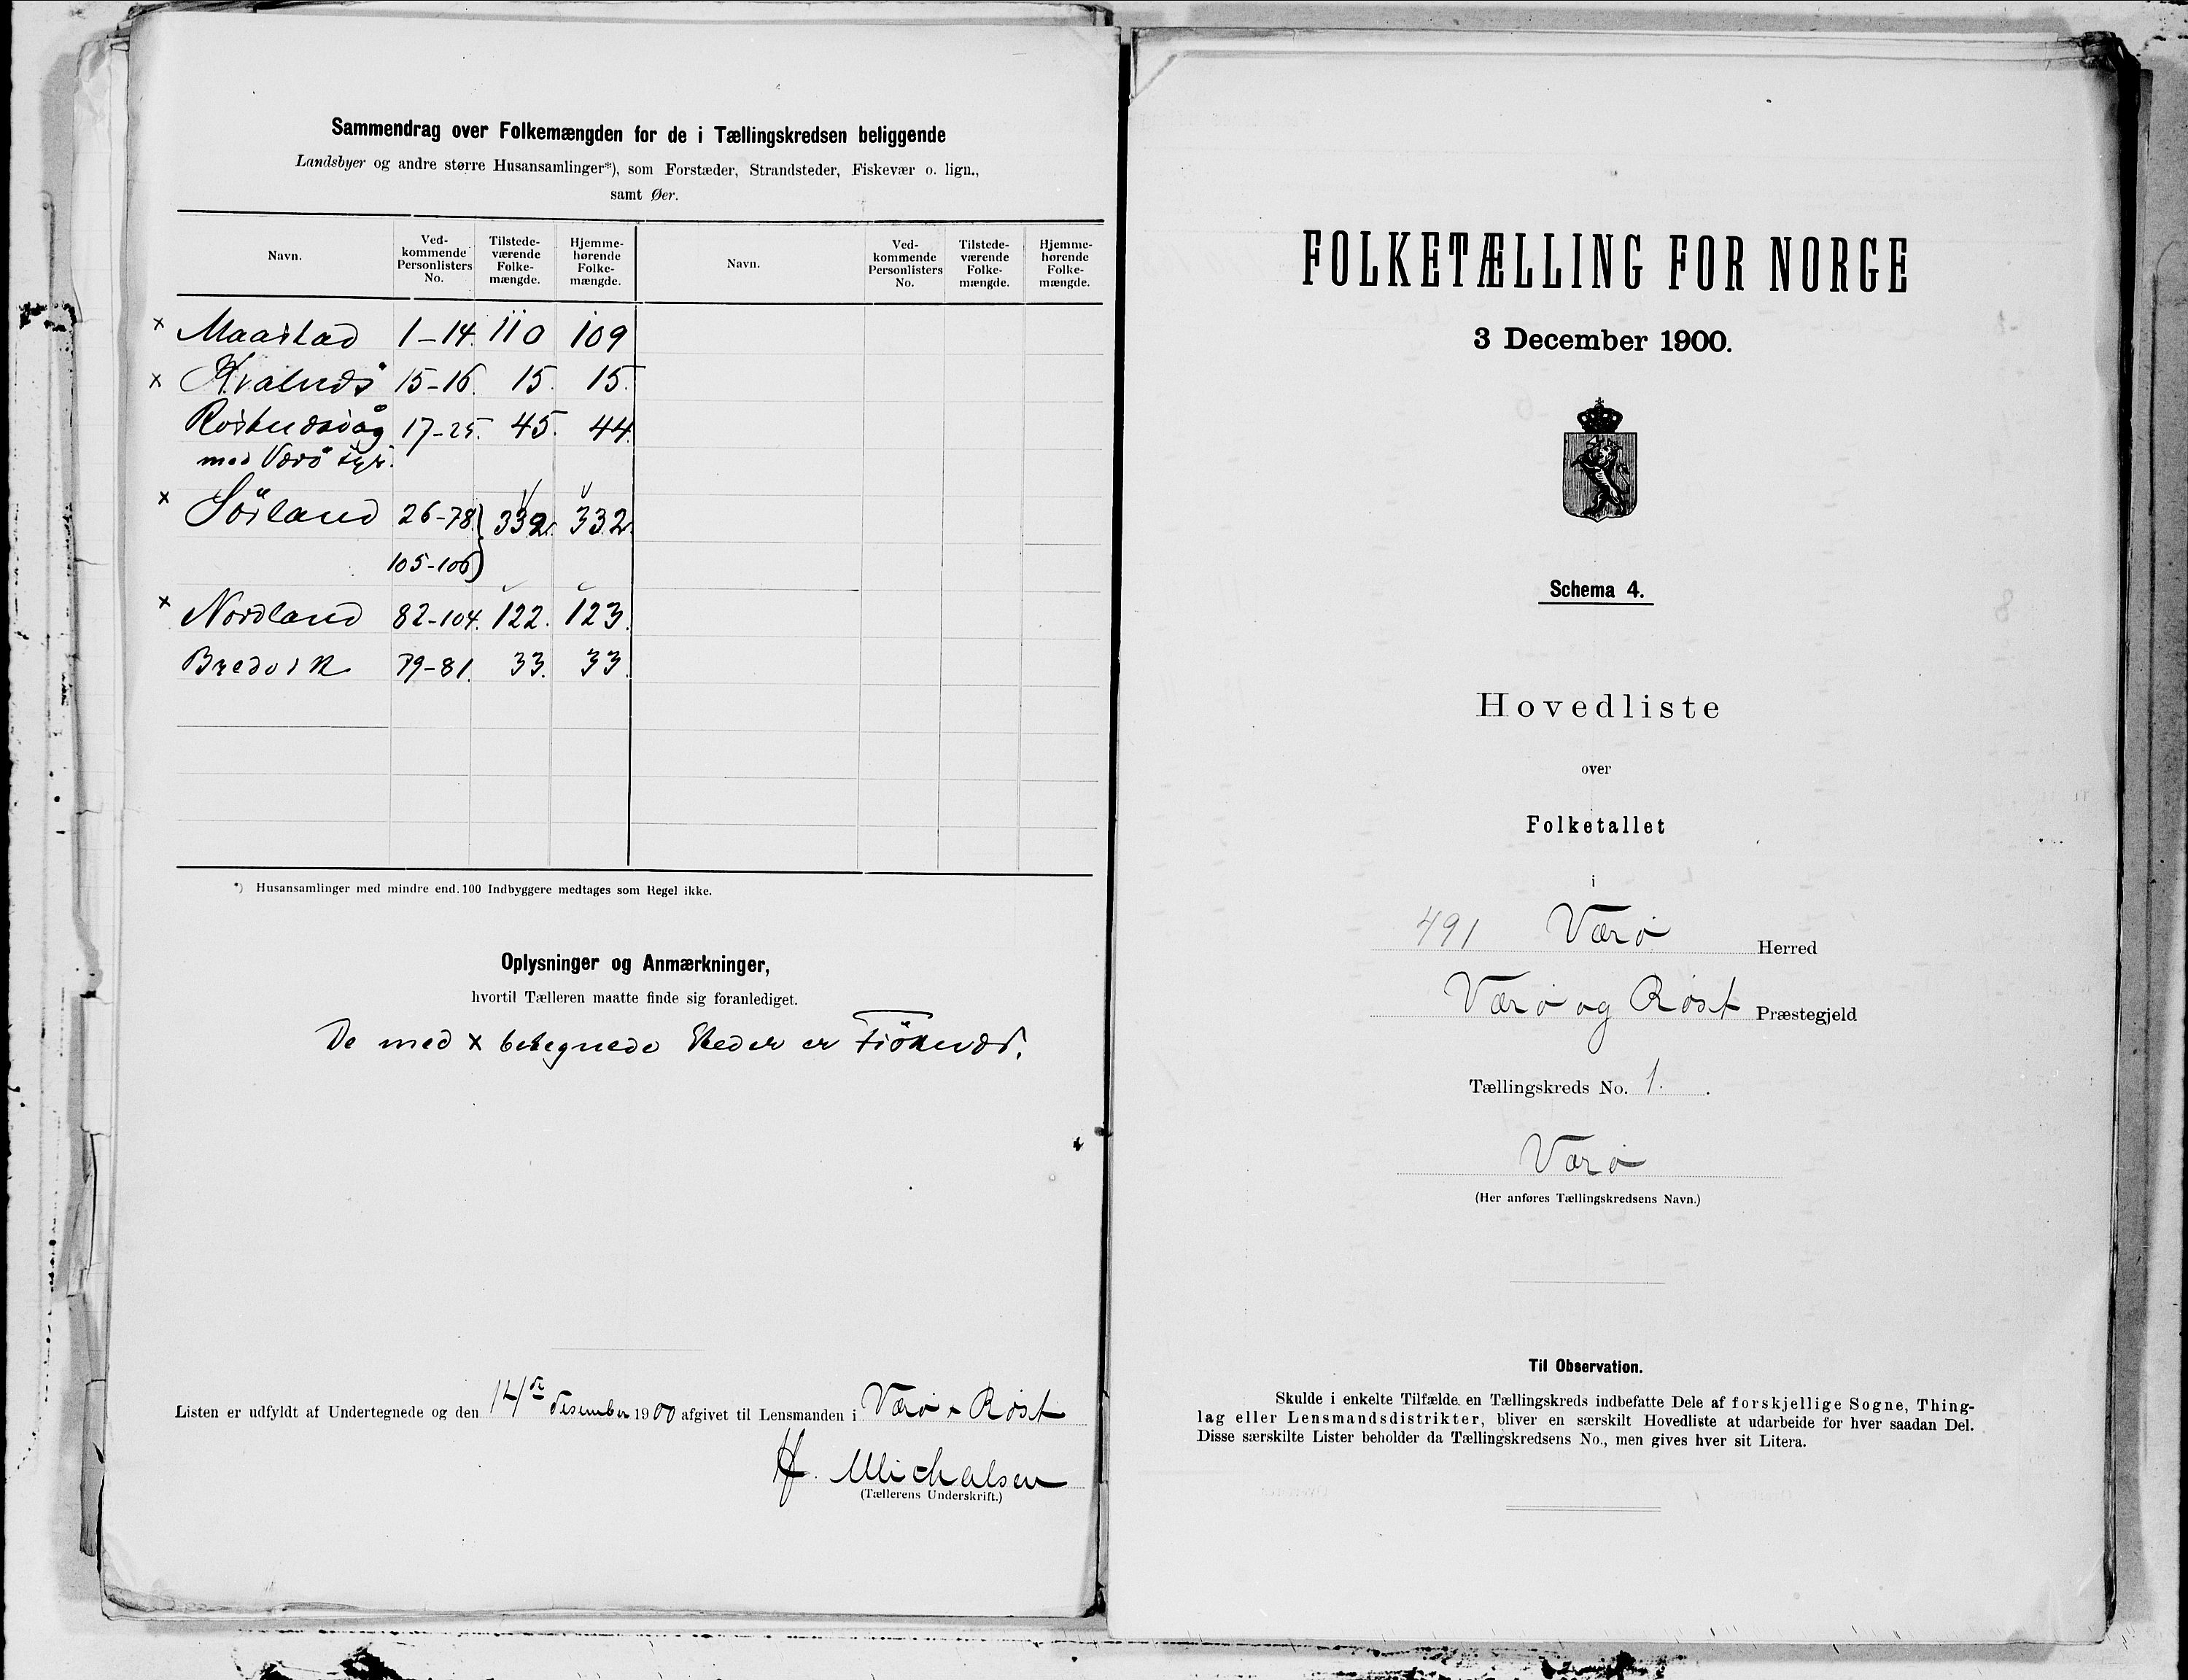 Sammendrag over Folkemængden for de i Tællingskredsen beliggende
Landsbyer og andre større Husansamlinger*), som Forstæder, Strandsteder, Fiskevær o. lign.,
samt Øer.
Navn. Ved-kommende Personlisters No. Tilstede-værende Folke-mængde. Hjemme-hørende Folke-mængde. Navn. Ved-kommende Personlisters No. Tilstede-værende Folke-mængde. Hjemme-hørende Folke-mængde.
x Maastad 1-14. 110 109
x Kvalnæs 15-16. 15. 15.
17-25. 45. 44.
med Værö fyr.
x Sörland 26-78 } 332. 332.
105-106
x Nordland 82-104. 122. 123.
Bredvik 79-81. 33. 33
*) Husansamlinger med mindre end 100 Indbyggere medtages som Regel ikke.
Oplysninger og Anmærkninger,
hvortil Tælleren maatte finde sig foranlediget.
De med x betegnede Steder er Fiskevær.
Listen er udfyldt af Undertegnede og den 14de desember 1900 afgivet til Lensmanden i Værö & Röst
H. Michalsen
(Tællerens Underskrift.)
FOLKETÆLLING FOR NORGE
3 December 1900.
Schema 4.
Hovedliste
over
Folketallet
i
491 Værø Herred
Værø og Røst Præstegjeld
Tællingskreds No. 1.
Værø
(Her anføres Tællingskredsens Navn.)
Til Observation.
Skulde i enkelte Tilfælde en Tællingskreds indbefatte Dele af forskjellige Sogne, Thing-
lag eller Lensmandsdistrikter, bliver en særskilt Hovedliste at udarbeide for hver saadan Del.
Disse særskilte Lister beholder da Tællingskredsens No., men gives hver sit Litera.